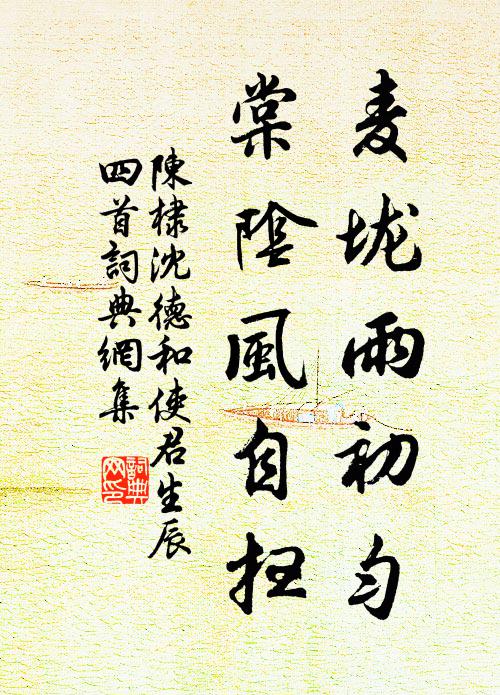 麦垅雨初匀
棠陰風自扫
陳棣沈德和使君生辰
四首詞典網集
詞典网印